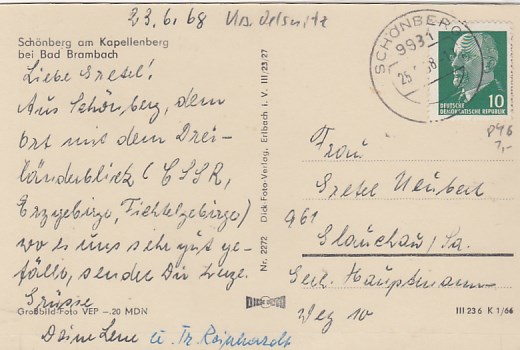 23.6.68
Schönberg am Kapellenberg
bei Bad Brambach
Liebe Gretel!
Aus Schönberg, dem
Ort mit dem Drei-
länderblick (ČSSR,
Erzgebirge, Fichtelgebirge)
wo es uns sehr gut ge-
fällt, senden Dir liebe
Grüsse
Deine Lene u. Fr. Reinhardt
Großbild-Foto VEP –.20 MDN
Nr. 2272 Dick-Foto-Verlag, Erlbach i. V. III.23.27
DICK FOTO
SCHÖNBERG
9931
DEUTSCHE
DEMOKRATISCHE REPUBLIK
10
Frau
Gretel Neubert
961
Glauchau/Sa.
Gerh. Hauptmann-
Weg 10
III 23 6 K 1/66